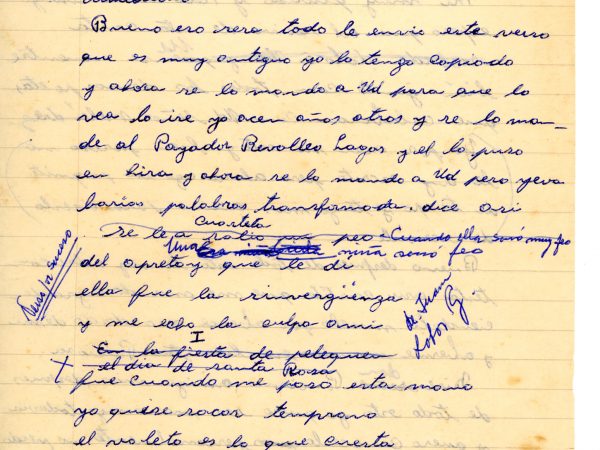 Bueno eso sera todo le envio este verso
que es muy antiguo yo lo tengo copiado
y ahora se lo mando a Ud para que lo
vea lo ise ya acen años atros y se lo man-
de al Payador Revolleo Lagos y el lo puso
en hira y ahora se lo mando a Ud pero yeva
barias palabras transformada. dice asi
Cuarteta
se le a salio un peo Cuando ella sonó muy feo
Una niña sonó feo
del apreto y que le di
Verso por suceso
ella fue la sinvergüenza
y me echo la culpa ami
de. Juan Lobos
I
En la fiesta de pelequen
+ el dia de santa Rosa
fue cuando me paso esta mano
yo quise sacar temprano
el voleto es lo que cuesta